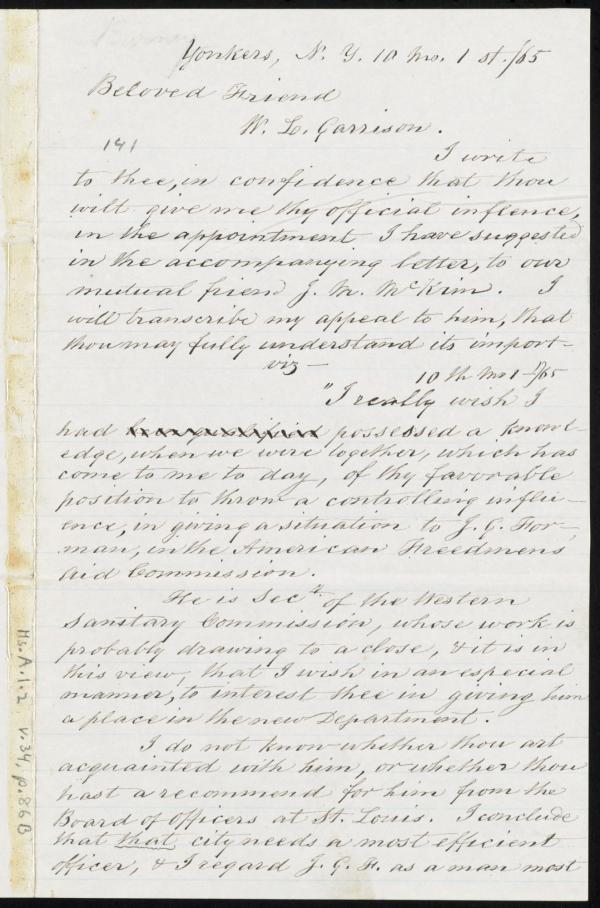 Yonkers, N. Y. 10 Mo. 1 st. /65
Beloved Friend
W. L. Garrison.
141
I write
to thee, in confidence that thou
wilt give me thy official inflence,
in the appointment I have suggested
in the accompanying letter, to our
mutual friend J. M. McKim. I
will transcribe my appeal to him, that
thou may fully understand its import-
viz —
10 th Mo 1 st/65
"I really wish I
had possessed a knowl-
edge, when we were together, which has
come to me to day, of thy favorable
position to throw a controlling influ-
ence, in giving a situation to J. G. For-
man, in the American Freedmens
Aid Commission.
He is Secty of the Western
Sanitary Commission, whose work is
probably drawing to a close, & it is in
this view, that I wish in an especial
manner, to interest thee in giving him
a place in the new Department.
I do not know whether thou art
acquainted with him, or whether thou
hast a recommend for him from the
Board of officers at St. Louis. I conclude
that that city needs a most efficient
officer, & I regard J. G. F. as a man most
Ms. A. 1. 2 v. 34, p. 86 B